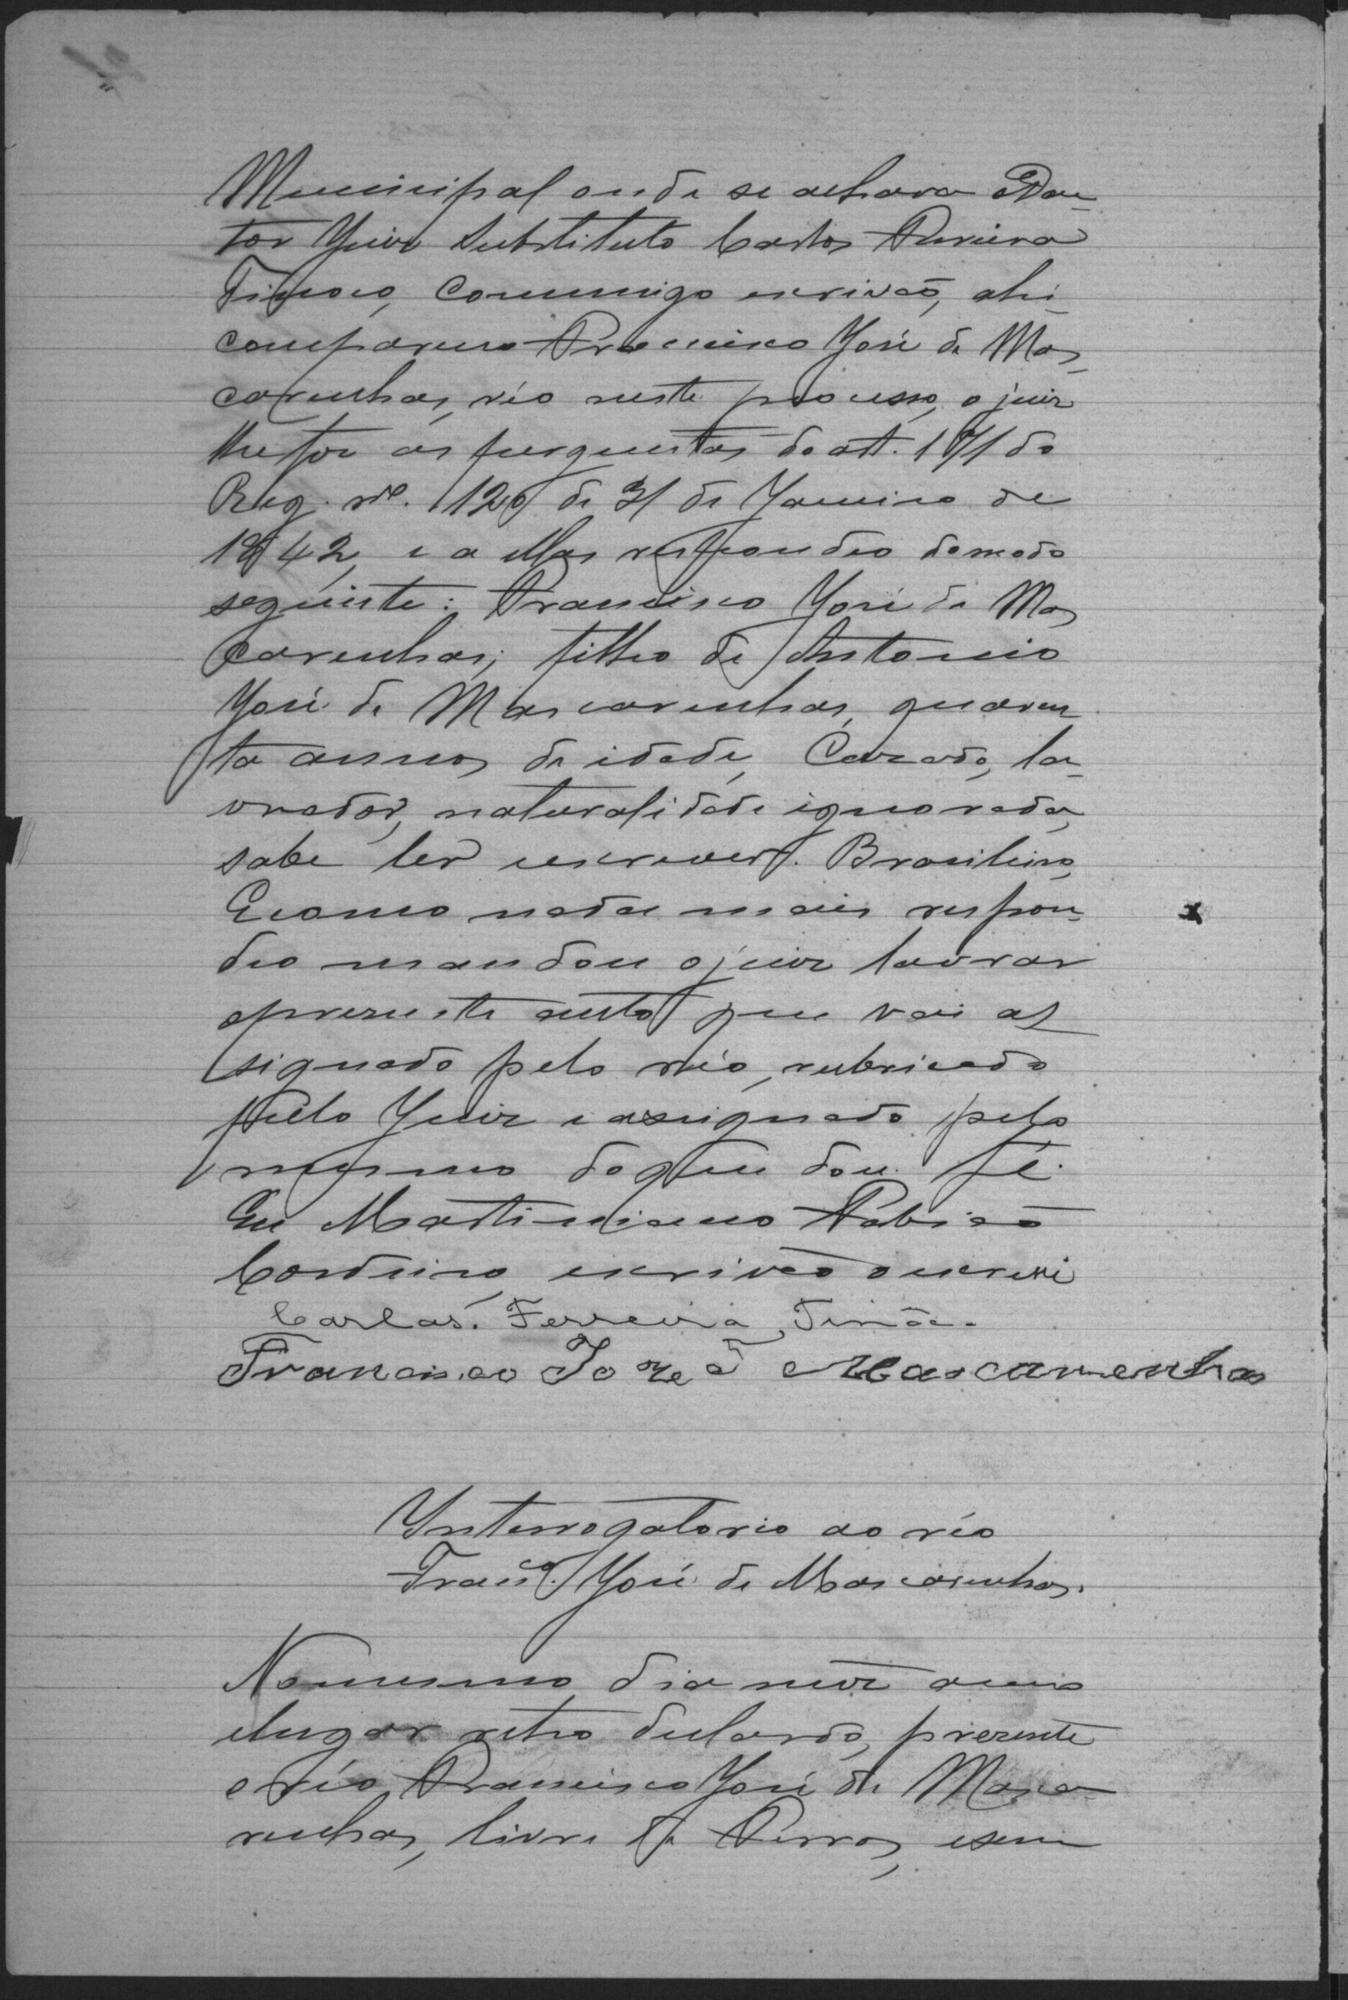 Municipal onde se achava o Dou-
tor Juiz Substituto Carlos Ferreira
Tinoco, commigo escrivão, ahi
compareceu Francisco José de Mas-
carenhas, réo neste processo, o juiz
lhe fez as perguntas do art. 171 do
Reg. nº. 120 de 31 de Janeiro de
1842, e a ellas respondeo do modo
seguinte: Francisco José de Mas
carenhas, filho de Antonio
José de Mascarenhas, quaren
ta annos de idade, Cazado, la-
vrador, naturalidade ignorada,
sabe ler e escrever. Brasileiro,
E como nada mais respon-
deo mandou o juiz lavrar
o prezente auto que vai as
signado pelo réo, rubricado
pello Juiz e assignado pelo
mesmo do que dou fé.
Eu Martiniano Fabião
Cordeiro, escrivão o escrevi
Carlos Ferreira Tinôco.
Francisco Jozé Mascarenhas
Interrogatorio ao réo
Franco. José de Mascarenhas.
No mesmo dia mez anno
e lugar retro declarado, prezente
o réo, Francisco José de Masca-
renhas, livre de Ferros, e sem